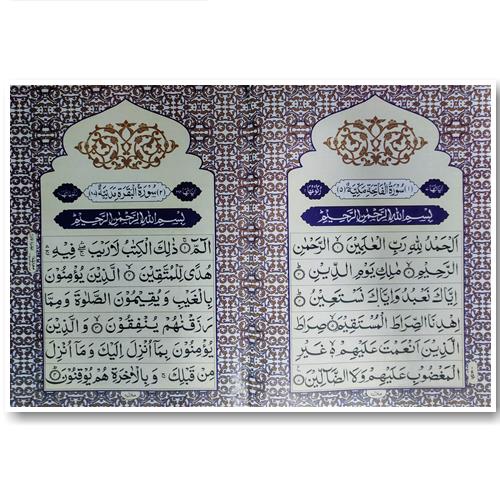 (١) سُوْرَةُ الْفَاتِحَةِ مَكِّيَّةٌ (٥)
بِسْمِ اللهِ الرَّحْمٰنِ الرَّحِيْمِ
اَلْحَمْدُ لِلّٰهِ رَبِّ الْعٰلَمِيْنَ ۝ الرَّحْمٰنِ
الرَّحِيْمِ ۝ مٰلِكِ يَوْمِ الدِّيْنِ ۝
اِيَّاكَ نَعْبُدُ وَاِيَّاكَ نَسْتَعِيْنُ ۝
اِهْدِنَا الصِّرَاطَ الْمُسْتَقِيْمَ ۝ صِرَاطَ
الَّذِيْنَ اَنْعَمْتَ عَلَيْهِمْ ۝ غَيْرِ
الْمَغْضُوْبِ عَلَيْهِمْ وَلَا الضَّآلِّيْنَ ۝
(٢) سُوْرَةُ الْبَقَرَةِ مَدَنِيَّةٌ
بِسْمِ اللهِ الرَّحْمٰنِ الرَّحِيْمِ
الٓمّٓ ۝ ذٰلِكَ الْكِتٰبُ لَا رَيْبَ ۛ فِيْهِ ۛ
هُدًى لِّلْمُتَّقِيْنَ ۝ الَّذِيْنَ يُؤْمِنُوْنَ
بِالْغَيْبِ وَيُقِيْمُوْنَ الصَّلٰوةَ وَمِمَّا
رَزَقْنٰهُمْ يُنْفِقُوْنَ ۝ وَالَّذِيْنَ
يُؤْمِنُوْنَ بِمَآ اُنْزِلَ اِلَيْكَ وَمَآ اُنْزِلَ
مِنْ قَبْلِكَ ۚ وَبِالْاٰخِرَةِ هُمْ يُوْقِنُوْنَ ۝